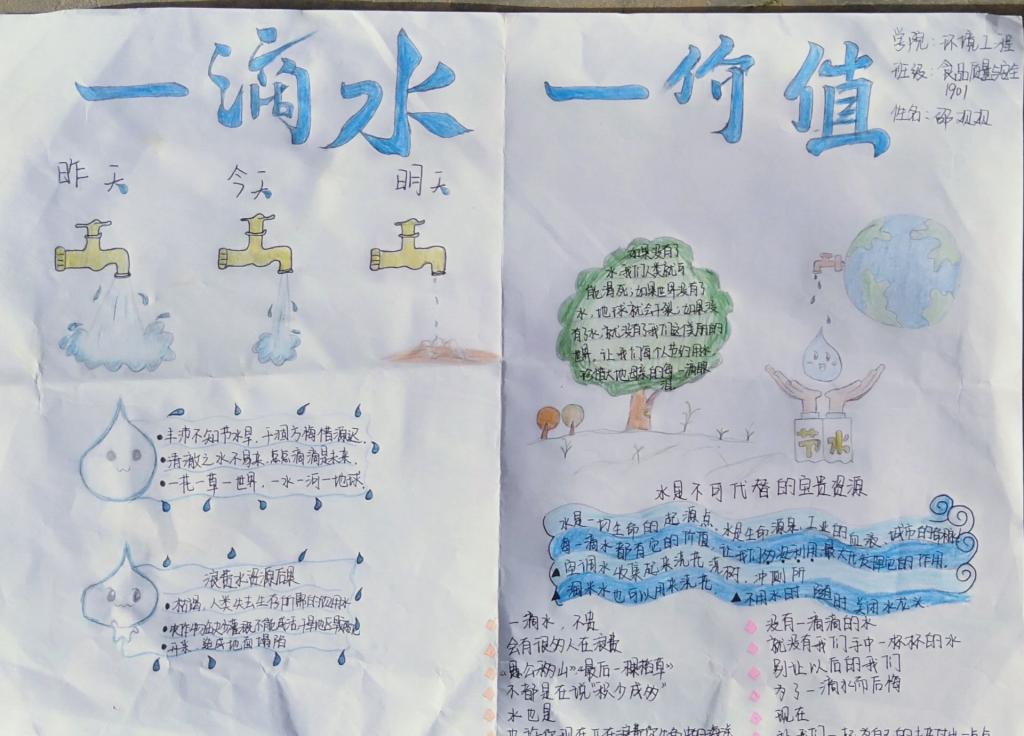 一滴水 一价值
学院：环境工程
班级：食品质量与安全
1901
姓名：邵
昨天 今天 明天
如果没有了
水,我们人类就可
能渴死;如果世界没有了
水,地球就会干裂;如果没
有了水,就没有了我们这美丽的
世界,让我们每个人节约用水
珍惜大地母亲的每一滴眼
泪
节水
丰沛不知节水早,干涸方悔惜源迟.
清澈之水不易来,点点滴滴是未来.
一花一草一世界,一水一河一地球.
水是不可代替的宝贵资源
水是一切生命的起源点,水是生命源泉,工业的血液,城市的命脉!
每一滴水都有它的价值,让我们勿必利用最大化发挥它的作用.
▲空调水收集起来浇花浇树,冲厕所
▲淘米水也可以用来浇花 ▲不用水时,随时关闭水龙头.
浪费水资源后果
枯竭,人类失去生存所需的饮用水
农作物
开采 造成地面塌陷
一滴水,不贵
会有很多人在浪费
"愚公移山""最后一棵稻草"
不都是在说"积少成多"
水也是
也许你现在正在浪费
没有一滴滴的水
就没有我们手中一杯杯的水
别让以后的我们
为了一滴水而后悔
现在
让我们一起为自己的 付出一点点